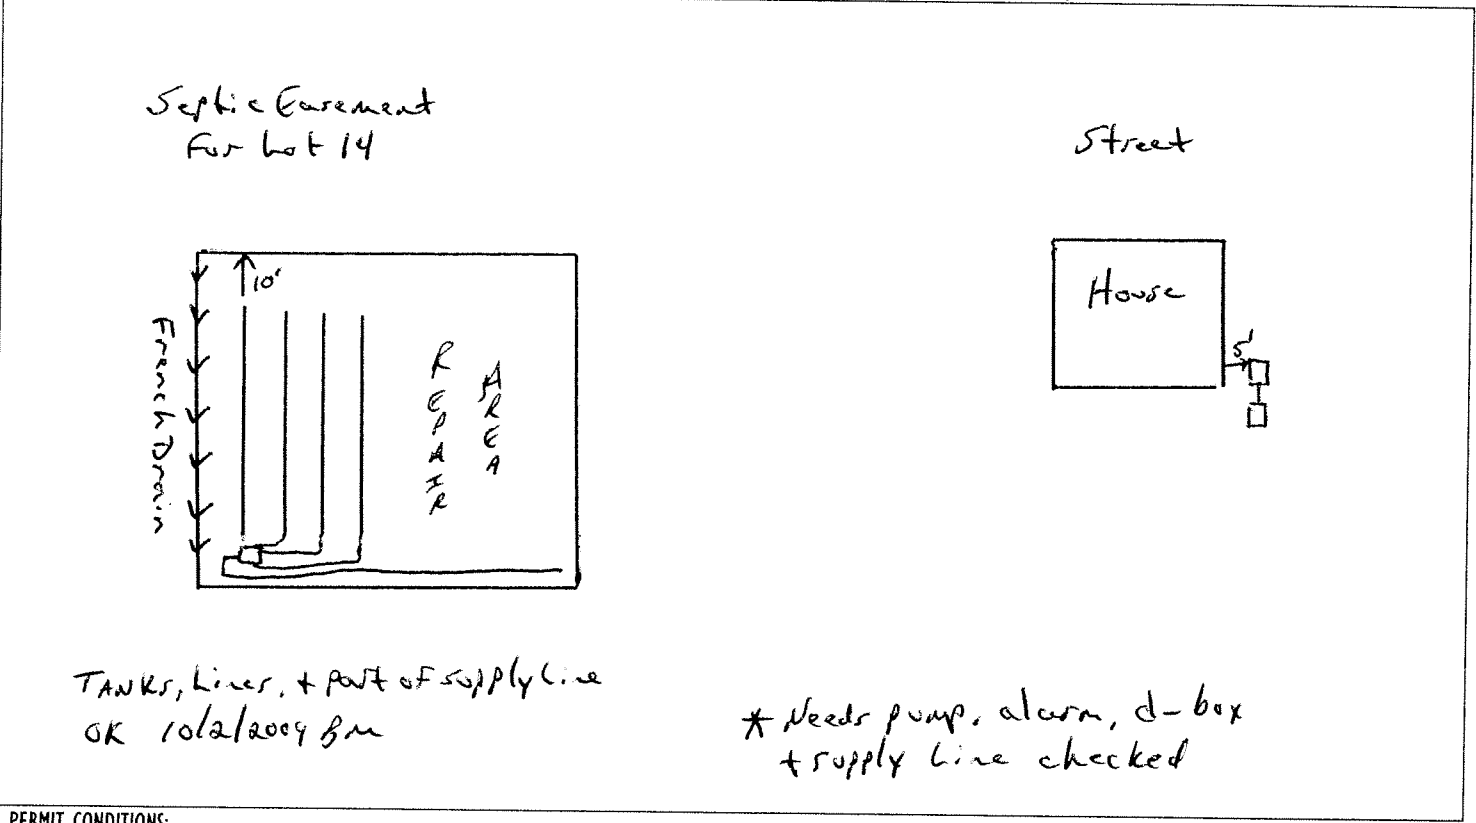 Septic Easement
For Lot 14
Street
10'
House
5'
French Drain
REPAIR
AREA
TANKS, Lines, + part of supply Line
OK 10/2/2009 BM
* Needs pump, alarm, d-box
+ supply Line checked
PERMIT CONDITIONS: